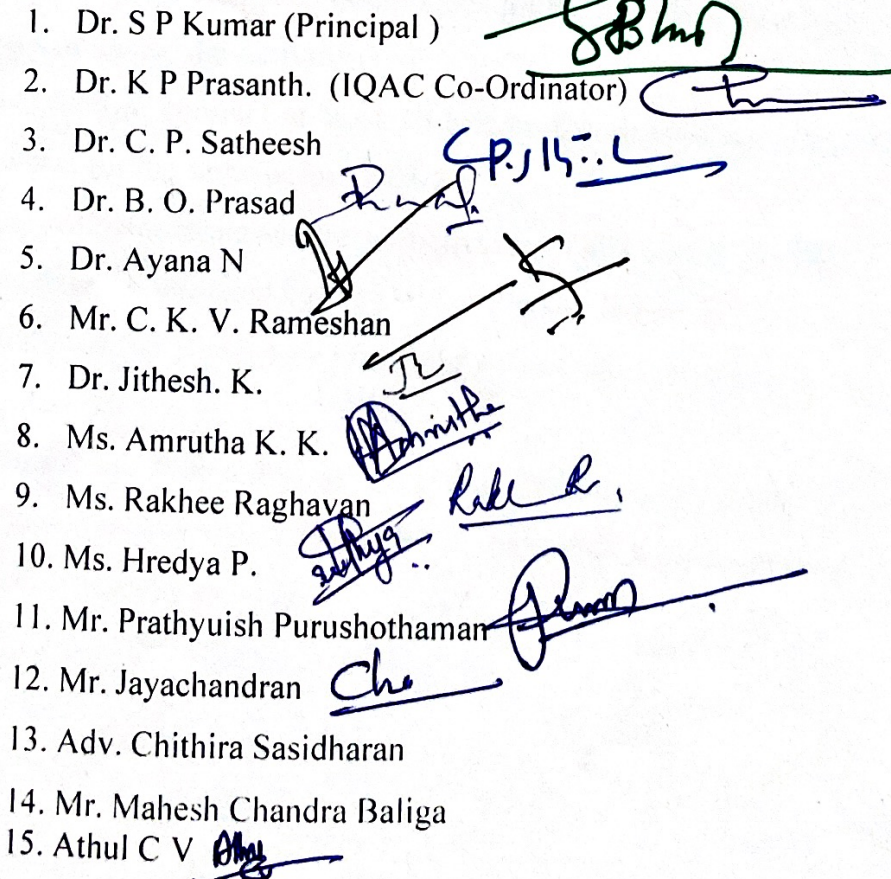 1. Dr. S P Kumar (Principal )
2. Dr. K P Prasanth. (IQAC Co-Ordinator)
3. Dr. C. P. Satheesh
4. Dr. B. O. Prasad
5. Dr. Ayana N
6. Mr. C. K. V. Rameshan
7. Dr. Jithesh. K.
8. Ms. Amrutha K. K. Amrutha
9. Ms. Rakhee Raghavan
10. Ms. Hredya P.
11. Mr. Prathyuish Purushothaman
12. Mr. Jayachandran
13. Adv. Chithira Sasidharan
14. Mr. Mahesh Chandra Baliga
15. Athul C V